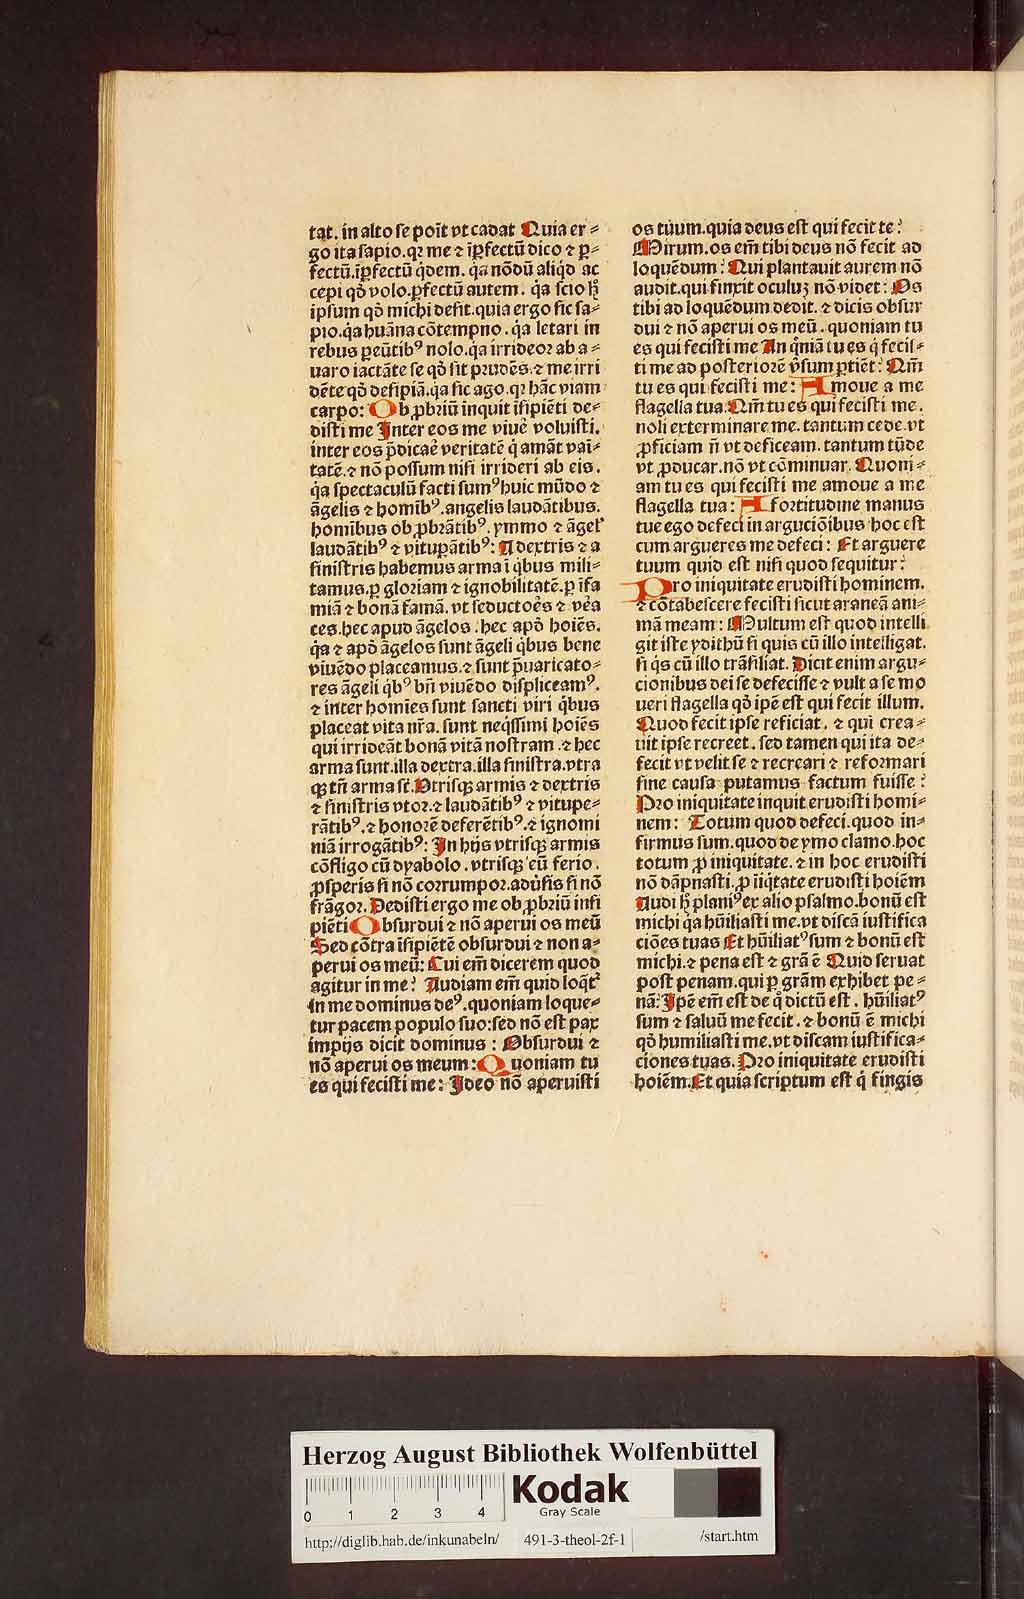 tat. in alto se poit̄ vt cadat Quia er⸗
go ita sapio. qꝛ me ⁊ īp̱fectū dico ⁊ p̱⸗
fectū. īp̱fectū q̇dem. q̇a nōdū aliq̇d ac
cepi qd̄ volo. p̱fectū autem. q̇a scio hꝭ
ipsum qd̄ michi desit. quia ergo sic sa⸗
pio. q̇a huāna cōtempno. q̇a letari in
rebus p̱eūtibꝰ nolo. q̇a irrideoꝛ ab a⸗
uaro iactāte se qd̄ sit pꝛudēs. ⁊ me irri
dēte qd̄ desipiā. q̇a sic ago. qꝛ hāc viam
carpo: Ob ꝓbriū inquit īsipiēti de⸗
disti me Inter eos me viue᷒ voluisti.
inter eos p̄dicae᷒ veritatē q̇ amāt vai⸗
tatē. ⁊ nō possum nisi irrideri ab eis.
q̇a spectaculū facti sumꝰ huic mūdo ⁊
āgelis ⁊ homībꝰ. angelis laudātibus.
homībus ob ꝓbrātibꝰ. ymmo ⁊ āgel᷒
laudātibꝰ ⁊ vitup̱ātibꝰ: A dextris ⁊ a
sinistris habemus arma ī q̇bus mili⸗
tamus. p̱ gloꝛiam ⁊ ignobilitatē. p̱ īfa
miā ⁊ bonā famā. vt seductoe᷒s ⁊ ve᷒a
ces. hec apud āgelos. hec apd̄ hoiēs.
q̇a ⁊ apd̄ āgelos sunt āgeli q̇bus bene
viuēdo placeamus. ⁊ sunt p̄uaricato⸗
res āgeli q̇bꝰ bn̄ viuēdo displiceamꝰ.
⁊ inter homīes sunt sancti viri q̇bus
placeat vita nr̄a. sunt neq̇ssimi hoiēs
qui irrideāt bonā vitā nostram. ⁊ hec
arma sunt. illa dextra. illa sinistra. vtra
qꝫ tn̄ arma st̄. Vtrisqꝫ armis ⁊ dextris
⁊ sinistris vtoꝛ. ⁊ laudātibꝰ ⁊ vitupe⸗
rātibꝰ. ⁊ honoꝛē deferētibꝰ. ⁊ ignomi
niā irrogātibꝰ: In hijs vtrisqꝫ armis
cōfligo cū dyabolo. vtrisqꝫ eū ferio.
ꝓsperis si nō coꝛrumpoꝛ. adūsis si nō
frāgoꝛ. Dedisti ergo me ob ꝓbriū insi
piēti Obsurdui ⁊ nō aperui os meū
Sed cōtra īsipiētē obsurdui ⁊ non a⸗
perui os meū: Cui em̄ dicerem quod
agitur in me? Audiam em̄ quid loq̇t᷒
in me dominus deꝰ. quoniam loque⸗
tur pacem populo suo: sed nō est pax
impijs dicit dominus: Obsurdui ⁊
nō aperui os meum: Quoniam tu
es qui fecisti me: Ideo nō aperuisti
os tuum. quia deus est qui fecit te?
Mirum. os em̄ tibi deus nō fecit ad
loquēdum? Qui plantauit aurem nō
audit. qui finxit oculuꝫ nō videt: Os
tibi ad loquēdum dedit. ⁊ dicis obsur
dui ⁊ nō aperui os meū. quoniam tu
es qui fecisti me An q̇niā tu es q̇ fecis⸗
ti me ad posterioꝛē v᷒sum p̱tiēt: Qm̄
tu es qui fecisti me: Amoue a me
flagella tua. Qm̄ tu es qui fecisti me.
noli exterminare me. tantum cede. vt
ꝓficiam n̄ vt deficeam. tantum tūde
vt ꝓducar. nō vt cōminuar. Quoni⸗
am tu es qui fecisti me amoue a me
flagella tua: A foꝛtitudine manus
tue ego defeci in arguciōibus hoc est
cum argueres me defeci: Et arguere
tuum quid est nisi quod sequitur?
Pro iniquitate erudisti hominem.
⁊ cōtabescere fecisti sicut araneā ani⸗
mā meam: Multum est quod intelli
git iste ydithū si quis cū illo intelligat.
si q̇s cū illo trāsiliat. Dicit enim argu⸗
cionibus dei se defecisse ⁊ vult a se mo
ueri flagella qd̄ ipē est qui fecit illum.
Quod fecit ipse reficiat. ⁊ qui crea⸗
uit ipse recreet. sed tamen qui ita de⸗
fecit vt velit se ⁊ recreari ⁊ refoꝛmari
sine causa putamus factum fuisse?
Pro iniquitate inquit erudisti homi⸗
nem: Totum quod defeci. quod in⸗
firmus sum. quod de ymo clamo. hoc
totum ꝓ iniquitate. ⁊ in hoc erudisti
nō dāpnasti. ꝓ iiq̇tate erudisti hoiēm
Audi hꝭ planiꝰ ex alio psalmo. bonū est
michi q̇a hūiliasti me. vt discā iustifica
ciōes tuas Et hūiliatꝰ sum ⁊ bonū est
michi. ⁊ pena est ⁊ grā ē Quid seruat
post penam. qui p̱ grām exhibet pe⸗
nā: Ipē em̄ est de q̇ dictū est. hūiliatꝰ
sum ⁊ saluū me fecit. ⁊ bonū ē michi
qd̄ humiliasti me. vt discam iustifica⸗
ciones tuas. Pro iniquitate erudisti
hoiēm. Et quia scriptum est q̇ fingis
Herzog August Bibliothek Wolfenbüttel
0 1 2 3 4
Kodak
Gray Scale
http://diglib.hab.de/inkunabeln/ 491-3-theol-2f-1 /start.htm